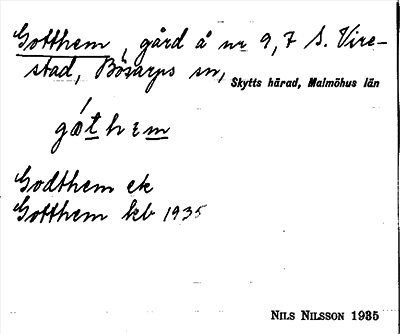 Gotthem, gård å nr 9,7 S. Vire-
stad, Bösarps sn, Skytts härad, Malmöhus län
gòt̲hem̲
Godthem ek
Gotthem kb 1935
NILS NILSSON 1935